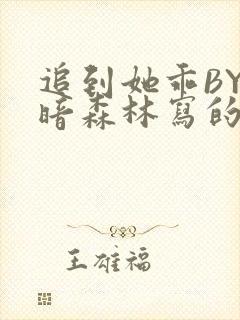 追到她乖BY
暗森林寫的
王雄福